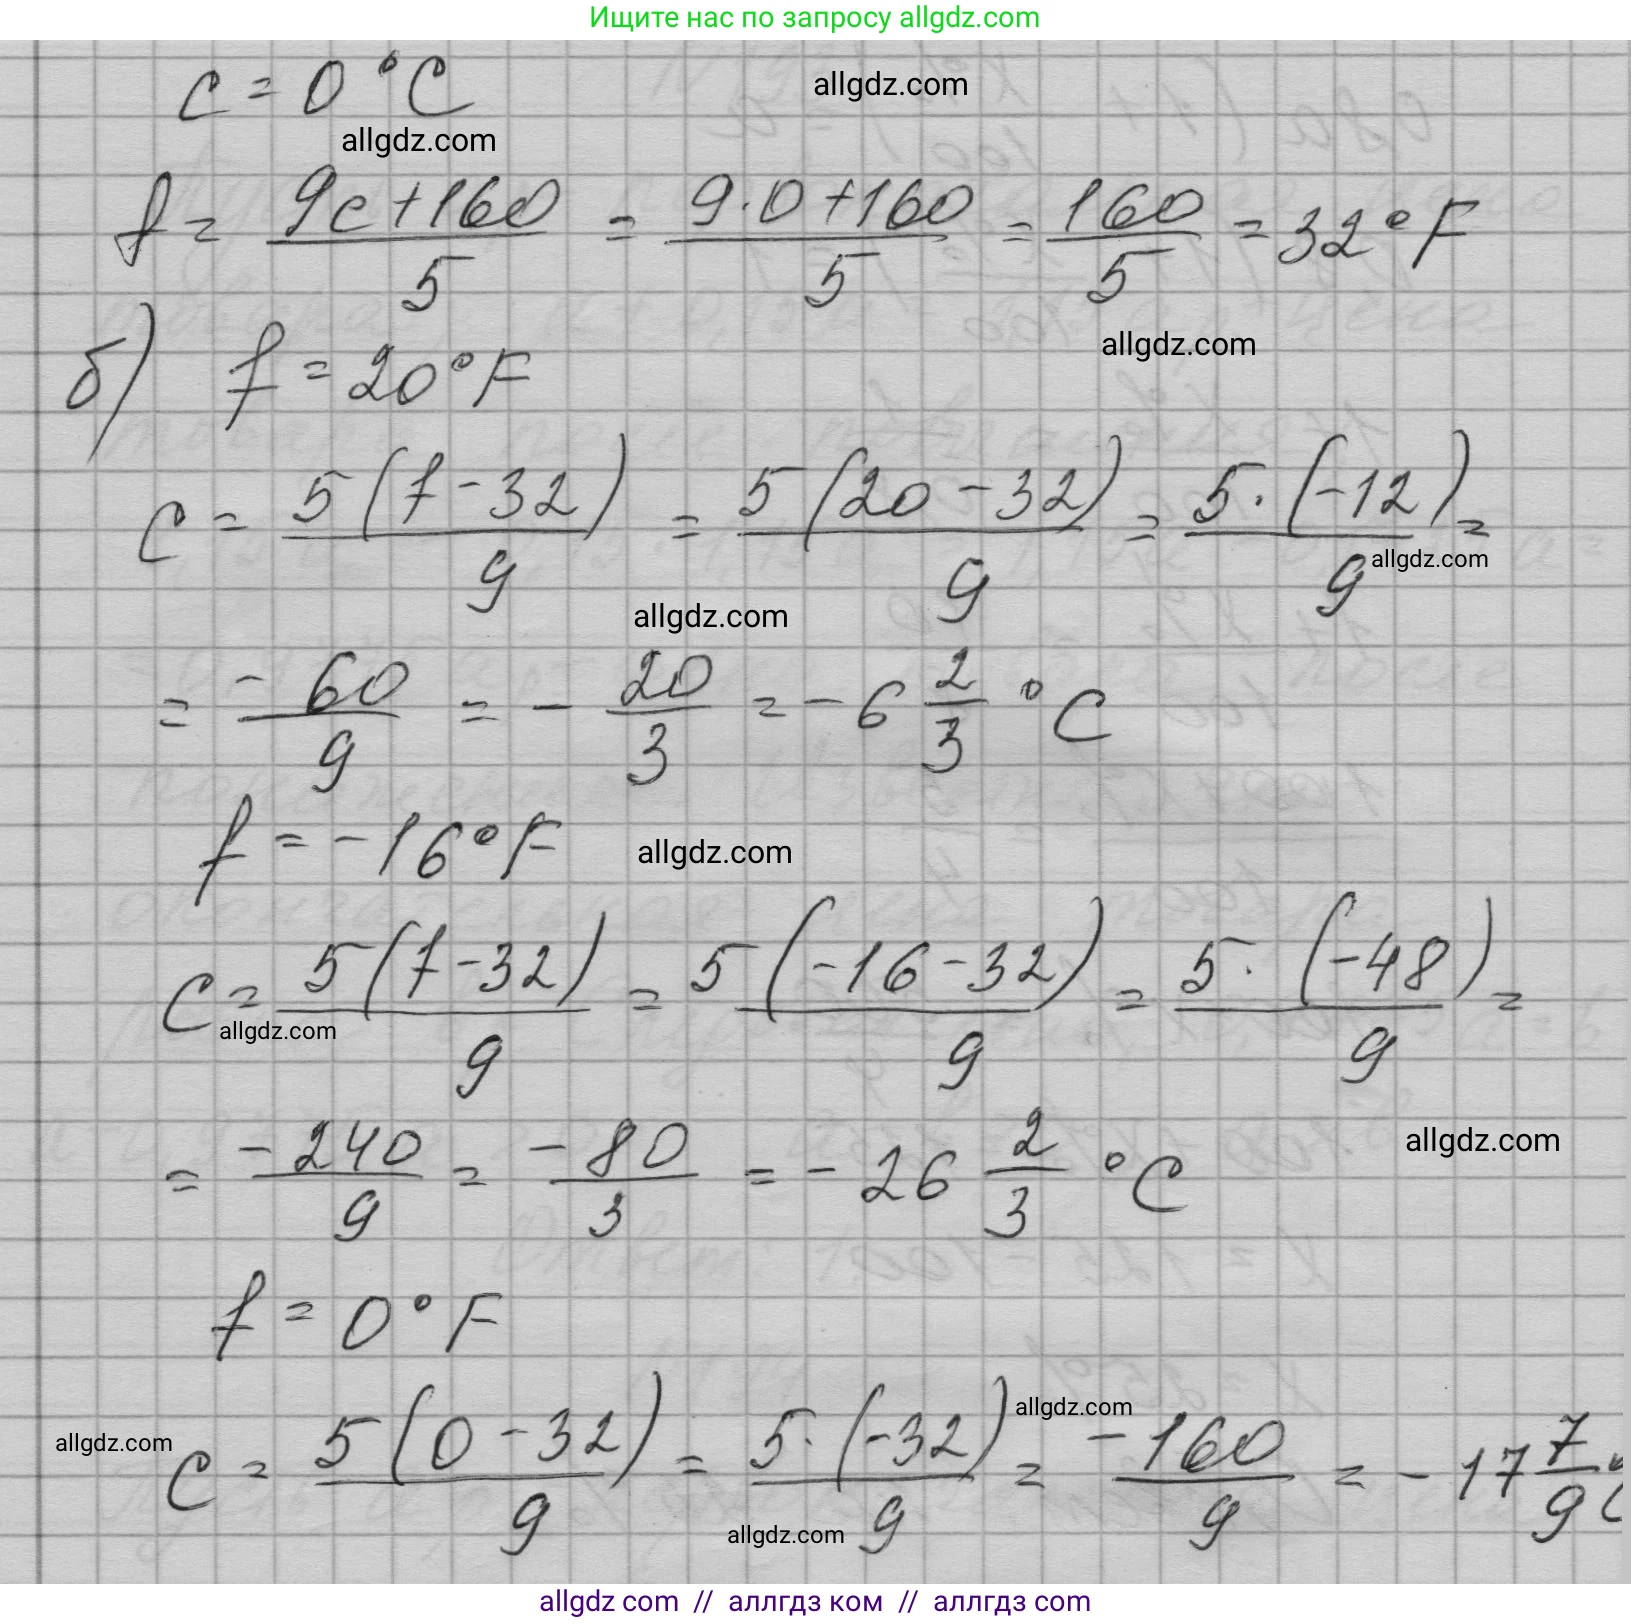 Ищите нас по запросу allgdz.com
c = 0 °C
allgdz.com
allgdz.com
f = (9c + 160)/5 = (9·0 + 160)/5 = 160/5 = 32 °F
allgdz.com
б) f = 20 °F
c = 5(f - 32)/9 = 5(20 - 32)/9 = 5·(-12)/9 =
allgdz.com
allgdz.com
= -60/9 = - 20/3 = - 6 2/3 °C
f = -16 °F
allgdz.com
c = 5(f - 32)/9 = 5(-16 - 32)/9 = 5·(-48)/9 =
allgdz.com
= -240/9 = -80/3 = - 26 2/3 °C
allgdz.com
f = 0 °F
allgdz.com
c = 5(0 - 32)/9 = 5·(-32)/9 = -160/9 = - 17 7/9 °C
allgdz.com
allgdz.com
allgdz.com // аллгдз ком // аллгдз com